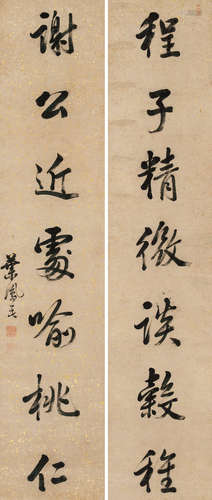 程子精微談穀種
謝公近處喻桃仁
葉鳳毛